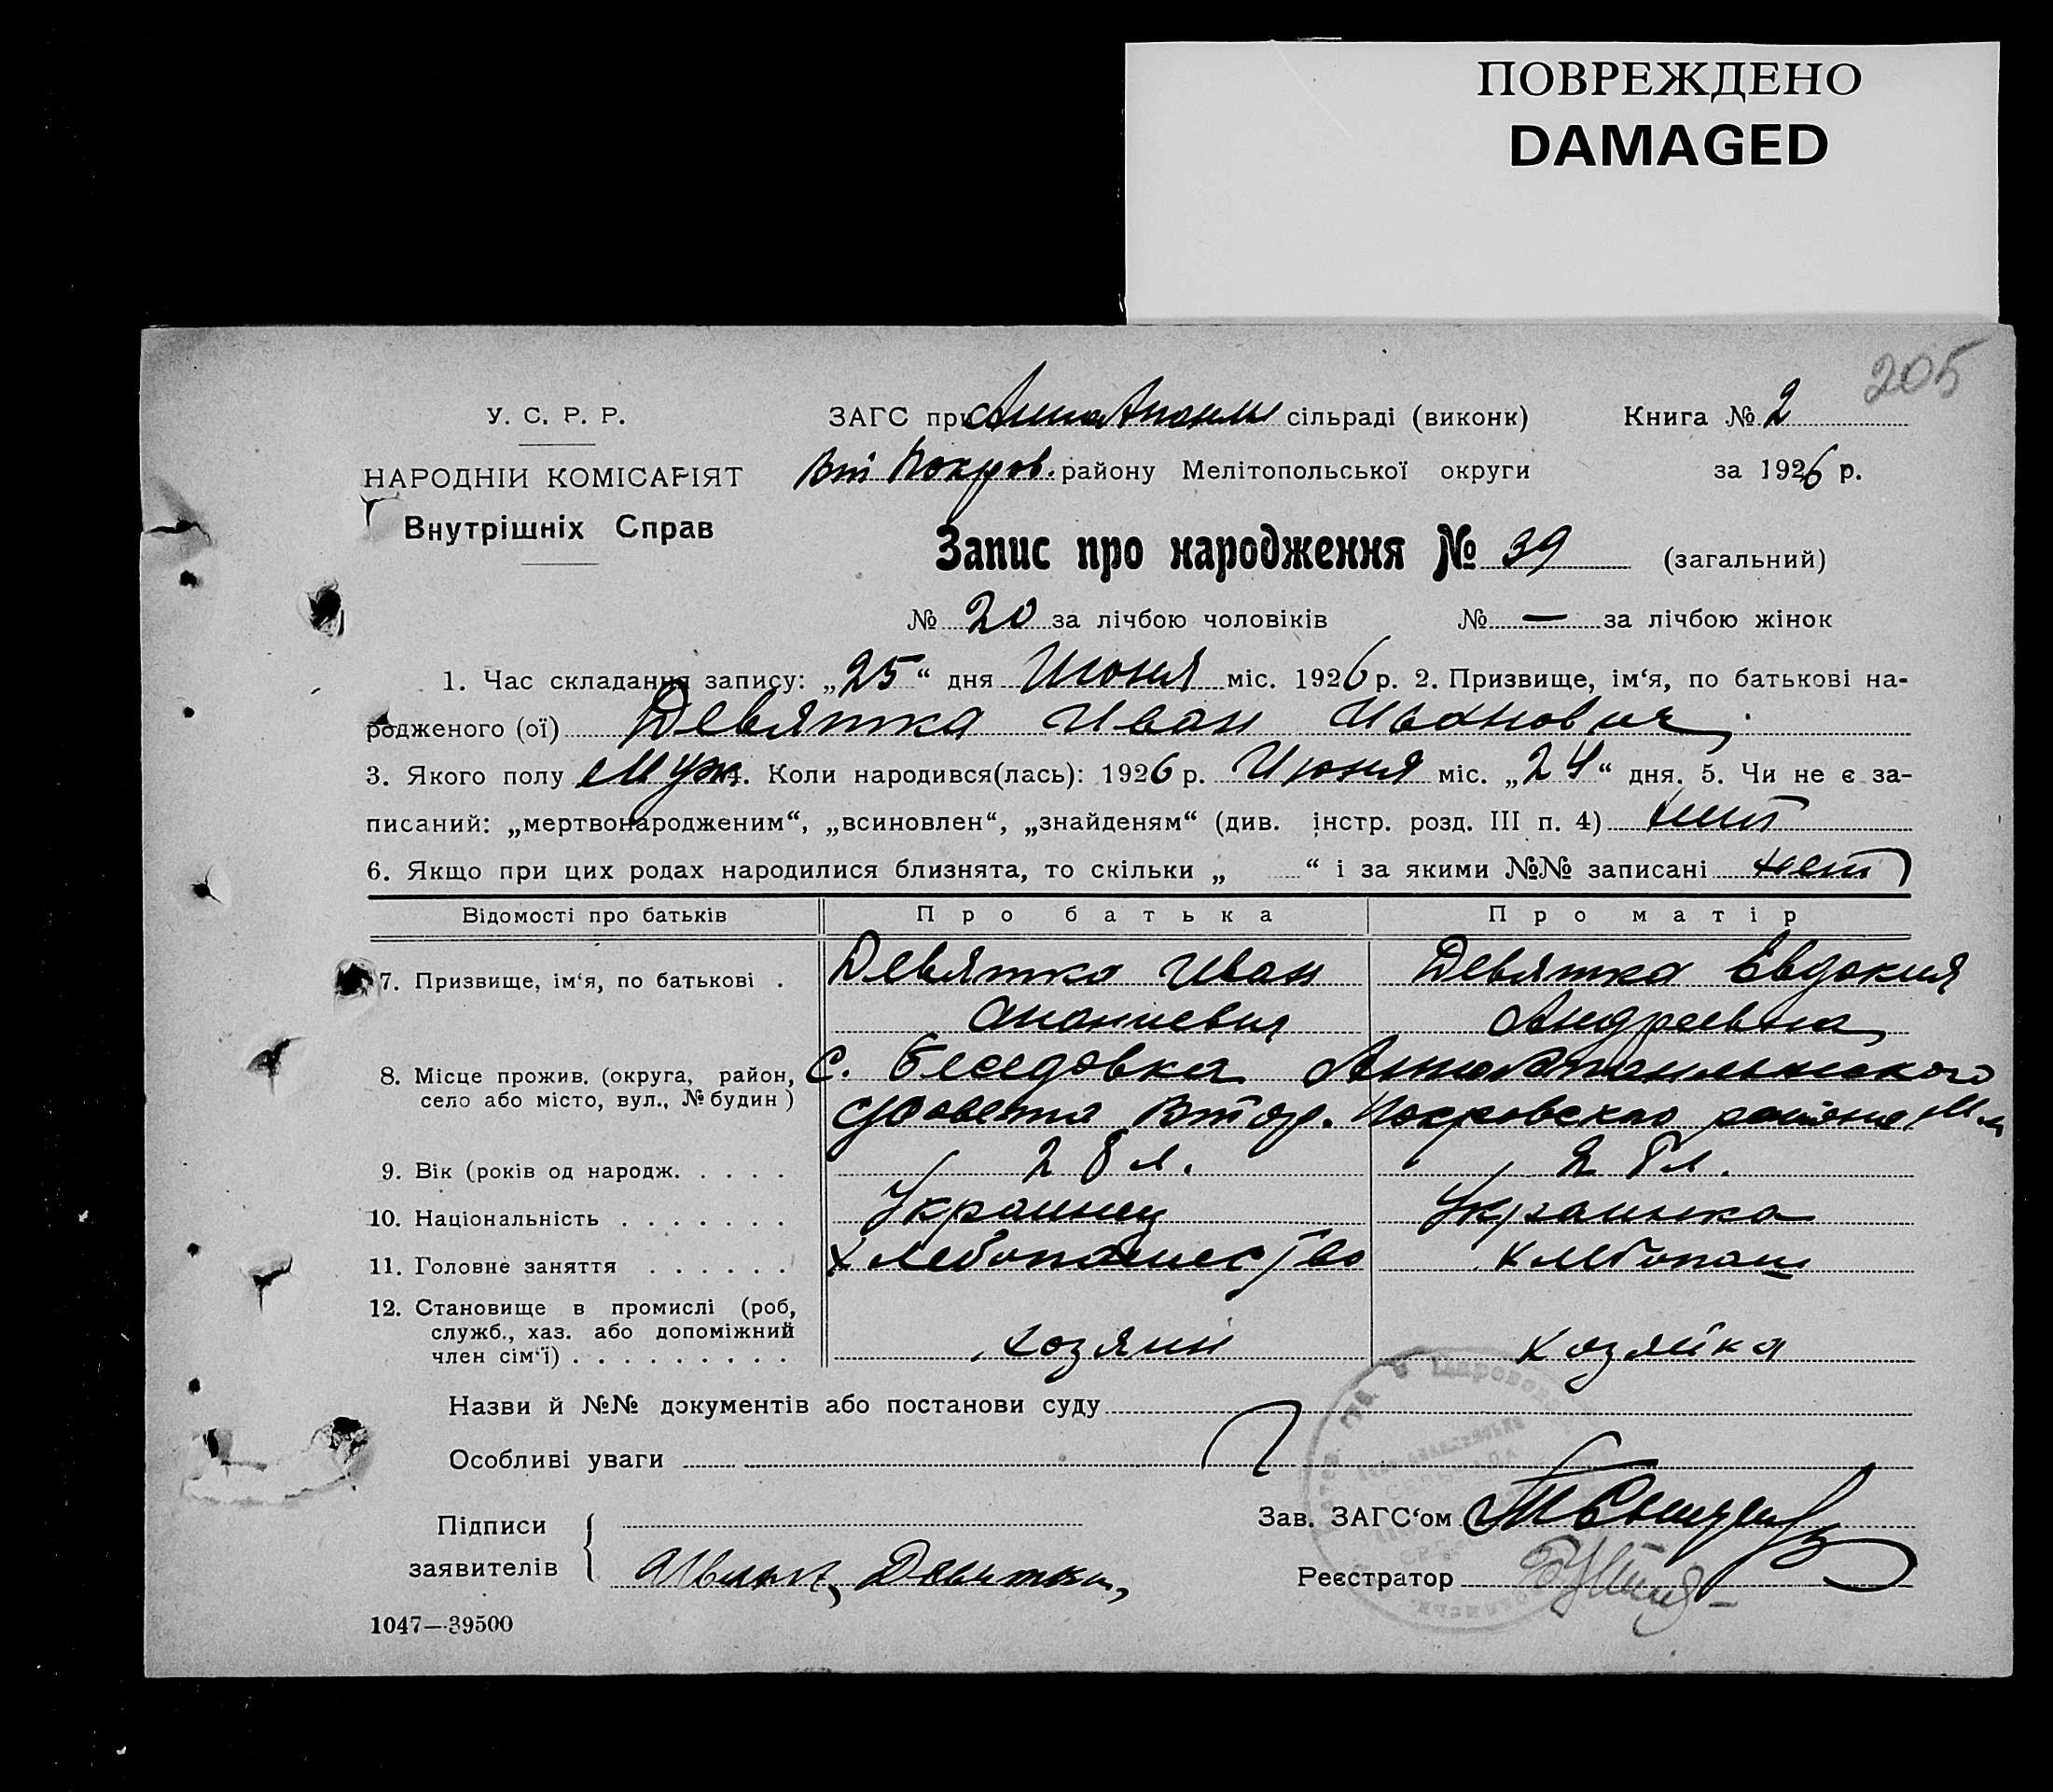 ПОВРЕЖДЕНО
DAMAGED
205
У. С. Р. Р.
ЗАГС при сільраді (виконк)
Книга № 2
НАРОДНІЙ КОМІСАРІЯТ
Вт Покров. району Мелітопольської округи
за 1926 р.
Внутрішніх Справ
Запис про народження № 39 (загальний)
№ 20 за лічбою чоловіків № — за лічбою жінок
1. Час складання запису: „25“ дня Июня міс. 1926 р. 2. Призвище, ім‘я, по батькові на-
родженого (ої) Девятка Иван Иванович
3. Якого полу Муж. 4. Коли народився(лась): 1926 р. Июня міс. „24“ дня. 5. Чи не є за-
писаний: „мертвонародженим“, „всиновлен“, „знайденям“ (див. інстр. розд. III п. 4) нет
6. Якщо при цих родах народилися близнята, то скільки „ “ і за якими №№ записані нет
Відомості про батьків
Про батька
Про матір
7. Призвище, ім‘я, по батькові .
Девятко Иван
Девятка Евдокия
Ананиевич
Андреевна
8. Місце прожив. (округа, район,
село або місто, вул., № будин)
с. Беседовка
Втор. Покровского района
9. Вік (років од народж. . . . .
28 л.
28 л.
10. Національність . . . . . . .
Украинец
Украинка
11. Головне заняття . . . . . .
Хлебопашество
Хлебопаш
12. Становище в промислі (роб,
служб., хаз. або допоміжний
член сім‘ї) . . . . . . . . .
хозяин
хозяйка
Назви й №№ документів або постанови суду
Особливі уваги
Підписи
заявителів
Девятка
Зав. ЗАГС‘ом
Реєстратор
1047—39500